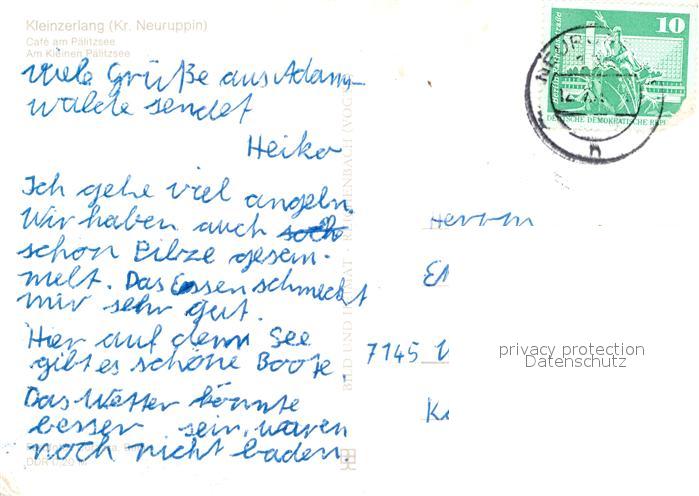 Kleinzerlang (Kr. Neuruppin)
Café am Pälitzsee
Am Kleinen Pälitzsee
Viele Grüße aus Adams-
walde sendet
Heiko
Ich gehe viel angeln.
Wir haben auch
schon Bilze gesem-
melt. Das Essen schmeckt
mir sehr gut.
Hier auf dem See
gibt es schöne Boote.
Das Wetter könnte
besser sein, waren
noch nicht baden.
10
DEUTSCHE DEMOKRATISCHE REP
Herrn
7145
privacy protection
Datenschutz